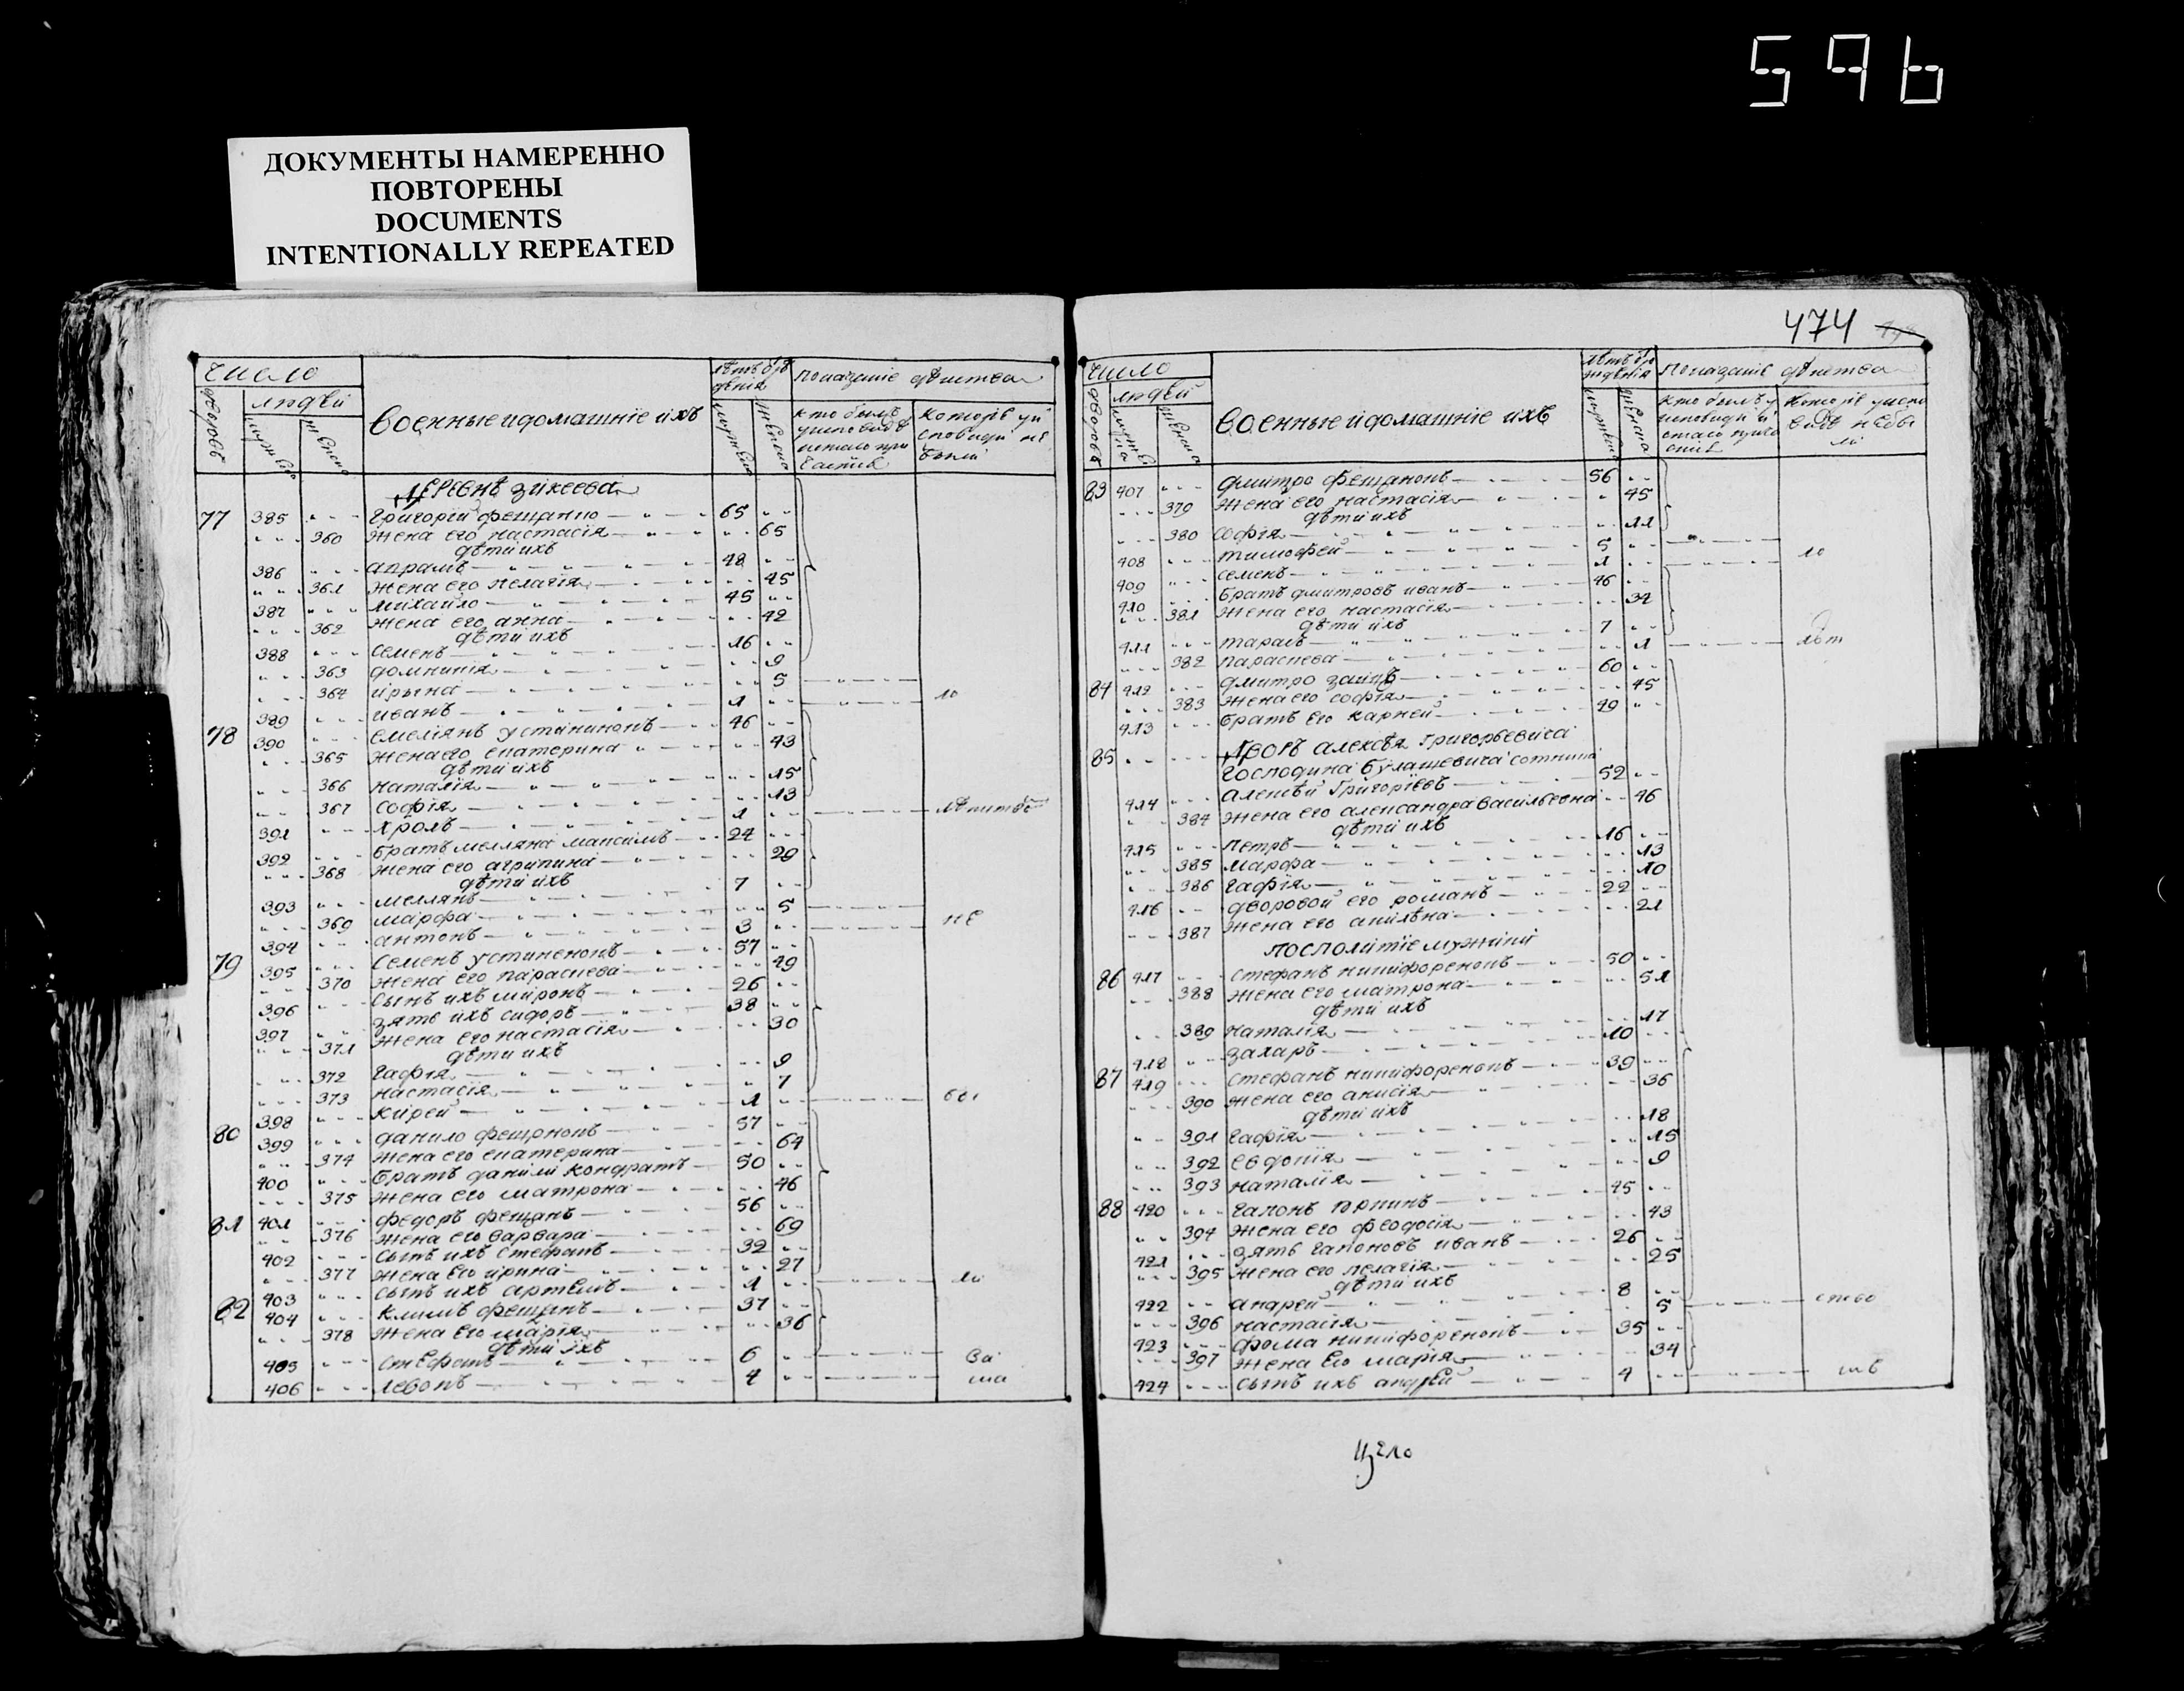 596
ДОКУМЕНТЫ НАМЕРЕННО
ПОВТОРЕНЫ
DOCUMENTS
INTENTIONALLY REPEATED
число
людей
дворовъ
военные и домашніе ихъ
показаніе действа
деревнѣ зикеева
77 385 Григорій фещенко 65
360 жена его настасія 65
дѣти ихъ
386 апрамъ 48
361 жена его пелагія 45
387 михайло 45
362 жена его анна 42
дѣти ихъ
388 семенъ 16
363 домникія 9
364 ирына 5
389 иванъ 1 ю
78 390 емеліянъ устиникопъ 46
365 жена его екатерина 43
дѣти ихъ
366 наталія 15
367 софія 13
391 хролъ 1
392 братъ меляна максимъ 24
368 жена его агрипина 29
дѣти ихъ
393 мелянъ 7
369 марфа 5
394 антонъ 3 не
79 395 семенъ устиненопъ 57
370 жена его параскева 49
396 сынъ ихъ миронъ 26
397 зять ихъ сидоръ 38
371 жена его настасія 30
дѣти ихъ
372 гафія 9
373 настасія 7
398 кирей 1
80 399 данило 57
374 жена его екатерина 64
400 братъ данили кондратъ 50
375 жена его матрона 46
81 401 федоръ фещенъ 56
376 жена его варвара 69
402 сынъ ихъ стефанъ 32
377 жена его ирина 27
403 сынъ ихъ артемъ 1
82 404 климъ фещенъ 37
378 жена его марія 36
дѣти ихъ
405 стефанъ 6 ва
406 левопъ 4 ша
474
число
людей
дворовъ
военные и домашніе ихъ
показаніе действа
83 407 дмитро фещенопъ 56
379 жена его настасія 45
дѣти ихъ
380 софія 11
408 тимофей 5 ю
409 семенъ 1
410 братъ дмитровъ иванъ 46
381 жена его настасія 34
дѣти ихъ
411 тарасъ 7
382 параскева 1
84 412 дмитро заицъ 60
383 жена его софія 45
413 братъ его карней 49
85 дворъ алексѣя григорьевича
господина булашевича сотника
414 алексѣй григоріевъ 52
384 жена его александра васильевна 46
дѣти ихъ
415 петръ 16
385 марфа 13
386 гафія 10
416 дворовой его романъ 22
387 жена его 21
посполитіе мужики
86 417 стефанъ никифоренопъ 50
388 жена его матрона 51
дѣти ихъ
389 наталія 17
418 захаръ 10
87 419 стефанъ никифоренопъ 39
390 жена его анисія 36
дѣти ихъ
391 гафія 18
392 евдокія 15
393 наталія 9
88 420 гапонъ 45
394 жена его феодосія 43
421 зять гапоновъ иванъ 26
395 жена его пелагія 25
дѣти ихъ
422 андрей 8
396 настасія 5
423 фома никифоренопъ 35
397 жена его марія 34
424 сынъ ихъ андрей 4